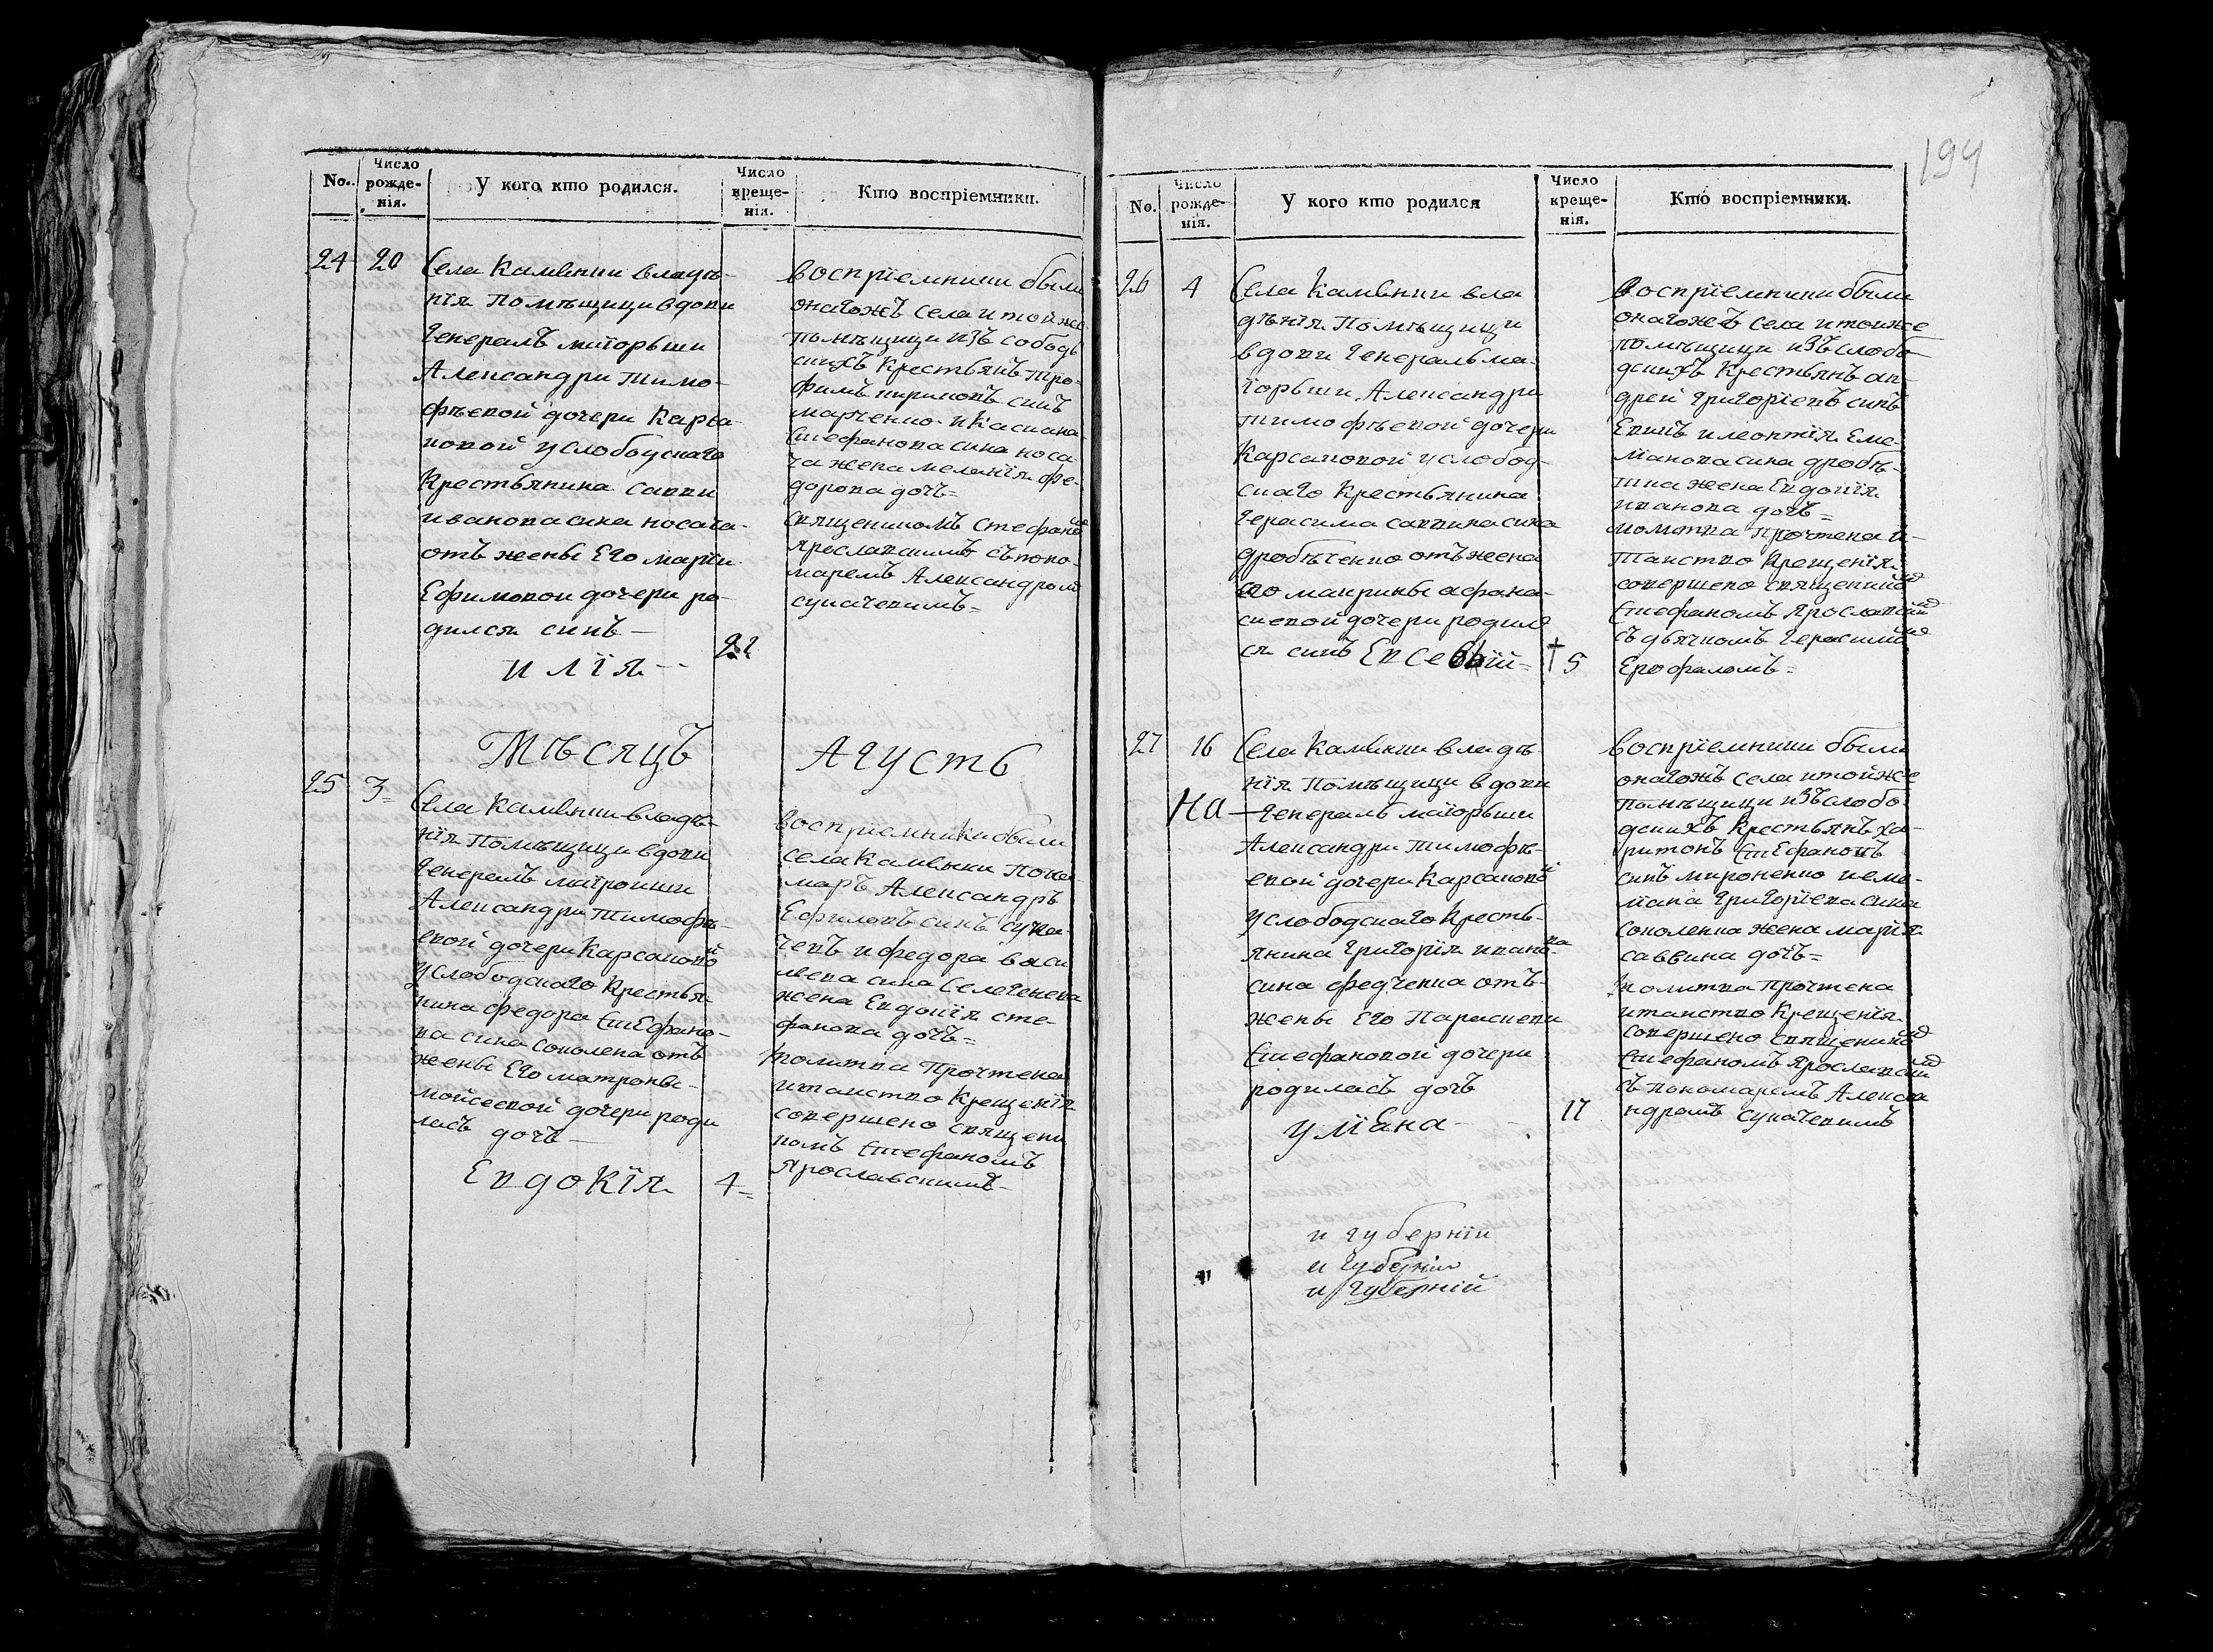 194
No.
Число рожде-нія.
У кого кто родился.
Число креще-нія.
Кто воспріемники.
24
20
Села Каменки владѣ-
нія Помѣщици вдови
Генералъ маіорьши
Александри тимо-
фѣевой дочери Карса-
ковой услободскаго
Крестьянина саввы
иванова сина носача
отъ жены Его маріи
Ефимовои дочери ро-
дился синъ —
илія --
22
воспріемники были
онагожъ села и той же
помѣщици изъ слобод
скихъ Крестьянъ тро-
фимъ кириловъ синъ
марченко и Касиана
Стефанова сина носа
ча жена меланія фе-
дорова дочь=
священикомъ стефаномъ
Ярославскимъ съ поно-
маремъ Александромъ
сукачевимъ=
Мѣсяцъ Августь
25
3=
Села Каменки владѣ-
нія Помѣщици вдови
Генералъ маіроши
Александри тимофѣ-
евой дочери Карсаковой
услободскаго Крестья-
нина федора Стефано-
ва сина соколена отъ
жены Его матроны-
мойсеевой дочери роди
лась дочь —
Евдокія
4=
воспріемники были
села Каменки Поно-
маръ Александръ
Ефимовъ синъ сука-
чевъ и федора васи
лева сина Селегенева
жена Евдокія сте-
фанова дочь=
молитва Прочтена
и таиство Крещенія
совершено священи
комъ Стефаномъ
Ярославскимъ-
No.
Число рожде-нія.
У кого кто родился
Число креще-нія.
Кто воспріемники.
26
4
Села Каменки вла
дѣнія Помѣщици
вдови Генералъ ма-
іорьши Александри
тимофѣевой дочери
Карсаковой услобод-
скаго Крестьянина
Герасима саввина сина
дробѣченко отъ жена
его маврины афана-
сиевой дочери родил
ся синъ Евсевій=
† 5
воспріемники были
онагожъ села и тойже
помѣщици изъ слобо
дскихъ Крестьянъ ан-
дрей григоріевъ синъ
и леонтія Еме-
лианова сина дробѣ-
жена Евдокія
иванова дочь=
молитва прочтена и-
таиство Крещенія
совершено священикомъ
Стефаномъ Ярославскимъ
съ дьячкомъ Герасимомъ
Ерофаломъ=
27
16
Села Каменки владѣ-
нія Помѣщици вдови
На — Генералъ маіорьши
Александри тимофѣ-
евой дочери Карсаковой
услободскаго Кресть-
янина Григорія иванова
сина федченка отъ-
жены Его Параскеви
Стефановой дочери
родилась дочь
уліана -
17
воспріемники были
онагожъ села и тойже
помѣщици изъ слобо-
дскихъ Крестьянъ ха-
ритонъ Стефановъ
синъ мироненко и еме-
лиана Григоріева сина
Соколенка жена марія
саввина дочь=
молитва прочтена
и таиство Крещенія
совершено Священикомъ
Стефаномъ Ярославскимъ
съ пономаремъ Алекса
ндромъ сукачевимъ
и губерніи
и Губерніи
и Губерній